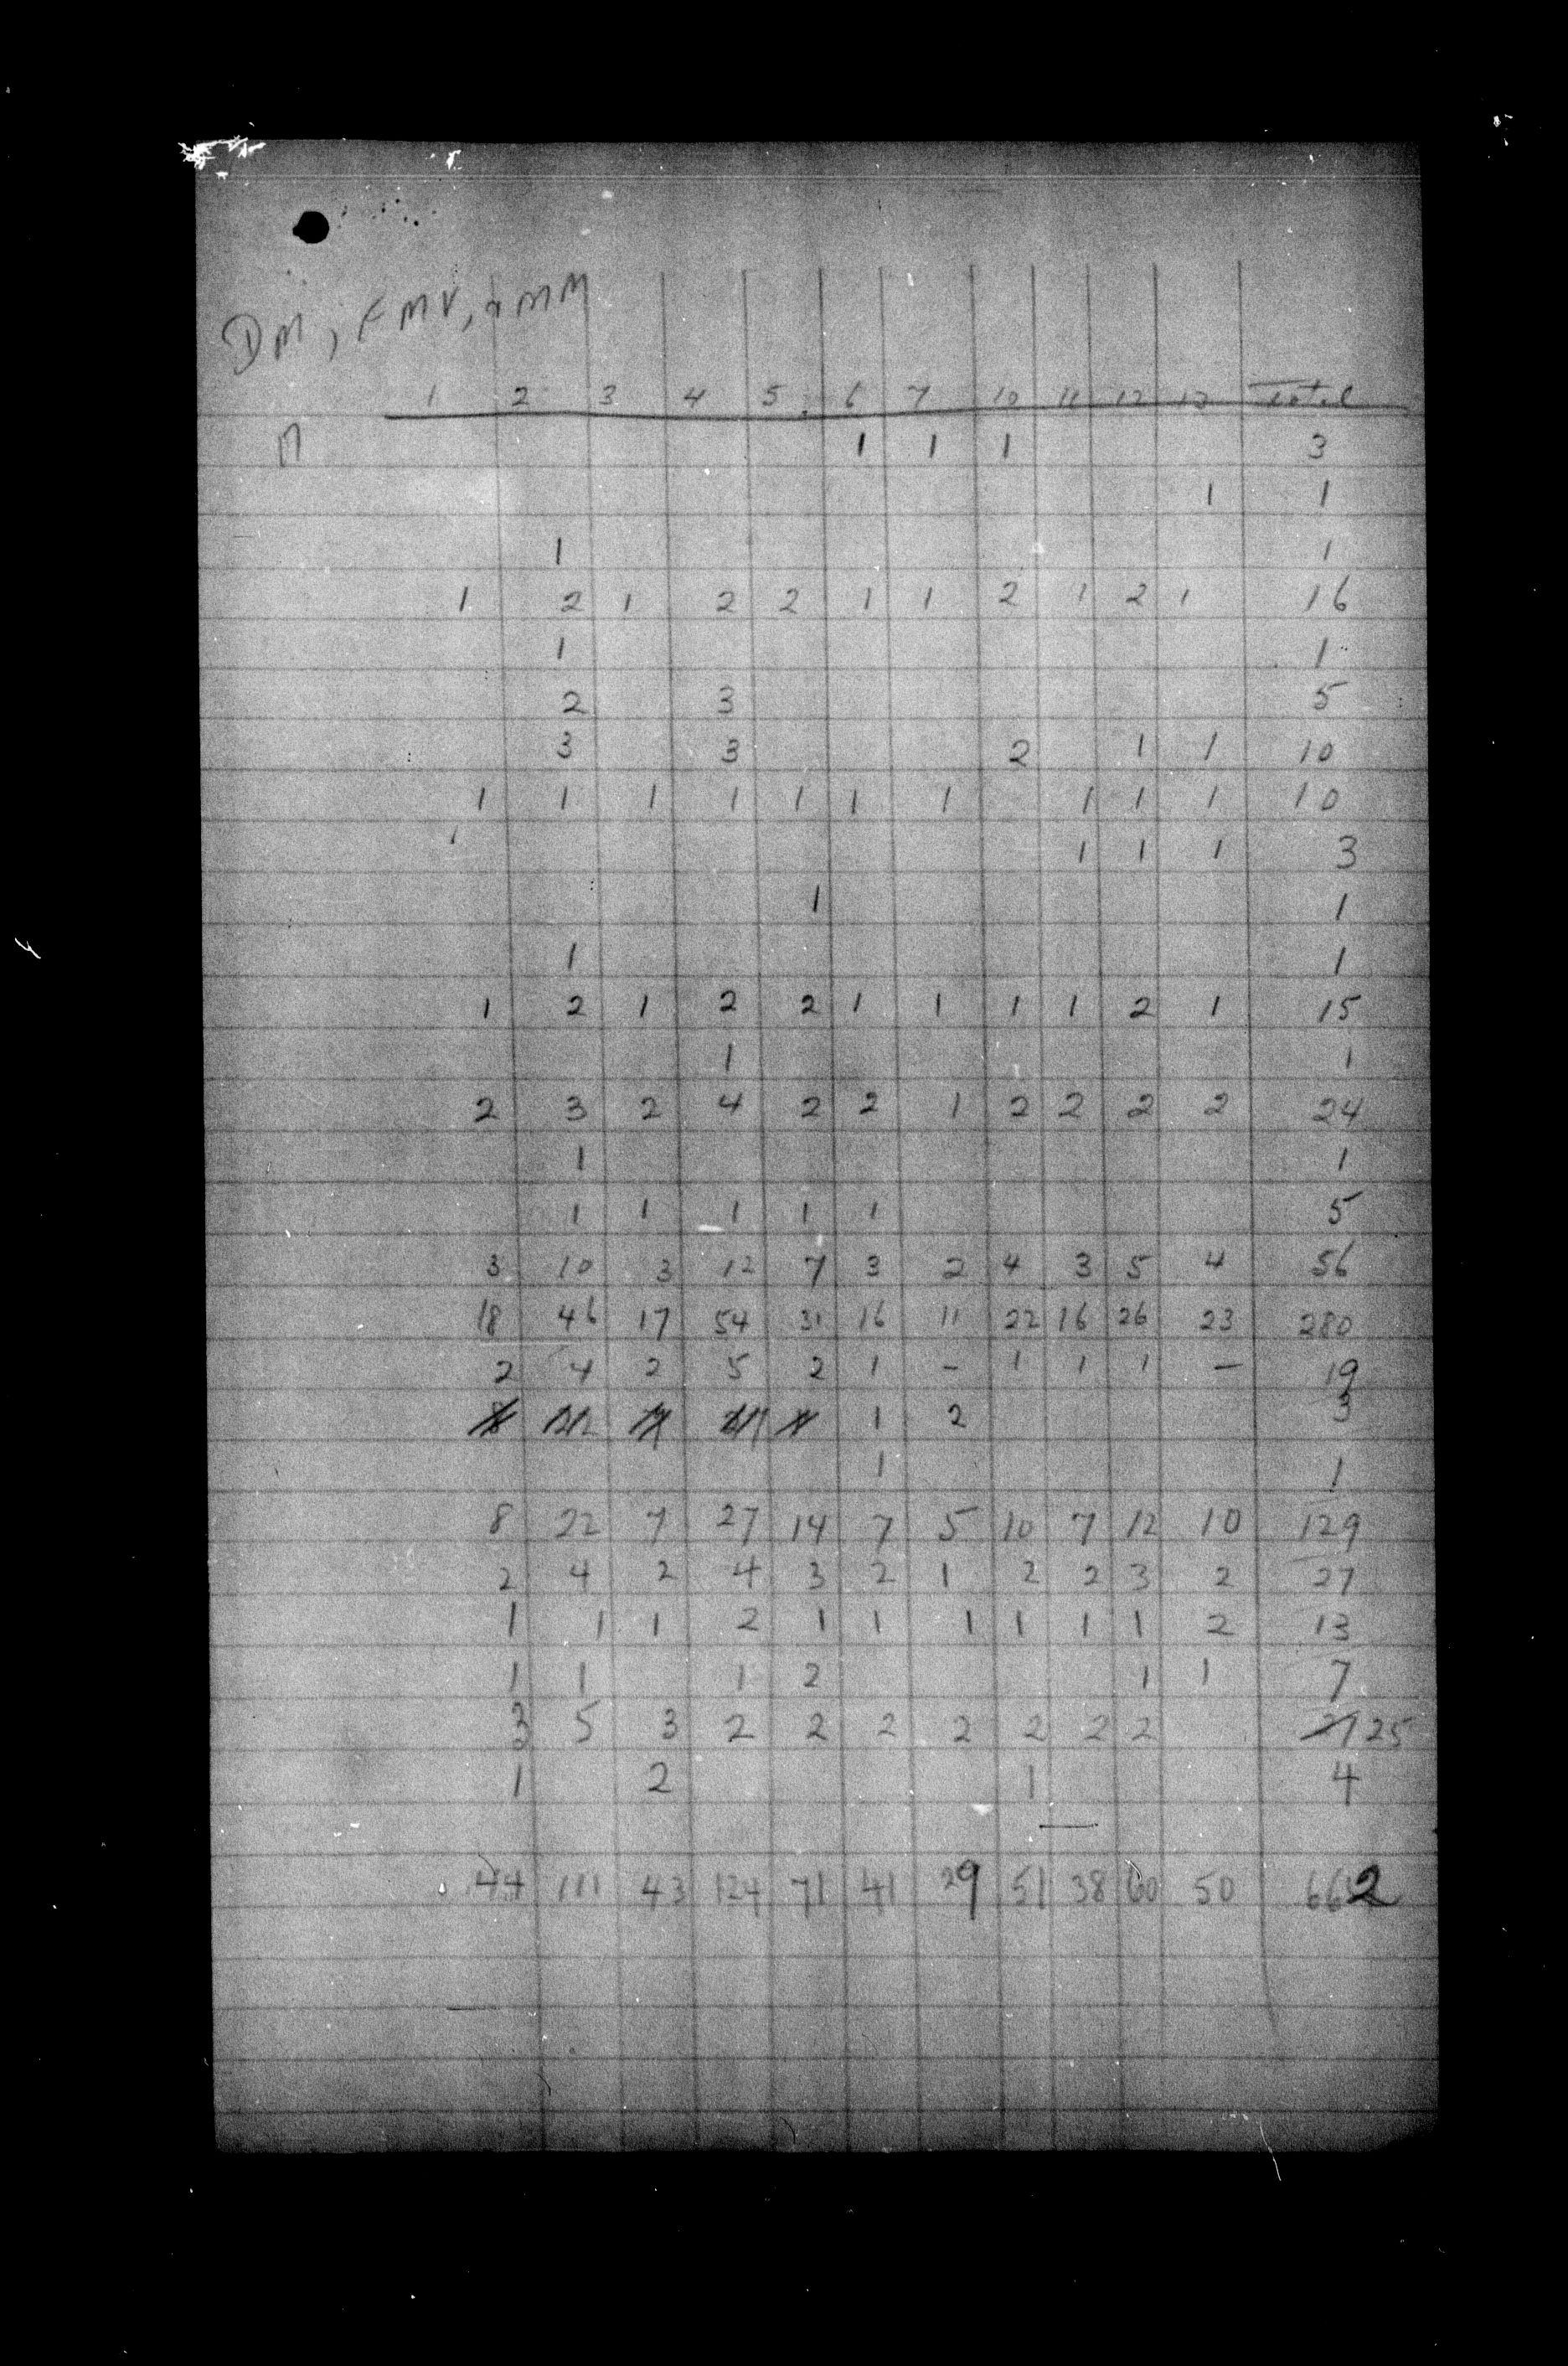 DM, FMV, & MM
1 2 3 4 5 6 7 10 11 12 13 Total
M 1 1 1 3
1 1
1 1
1 2 1 2 2 1 1 2 1 2 1 16
1 1
2 3 5
3 3 2 1 1 10
1 1 1 1 1 1 1 1 1 1 10
1 1 1 3
1 1
1 1
1 2 1 2 2 1 1 1 1 2 1 15
1 1
2 3 2 4 2 2 1 2 2 2 2 24
1 1
1 1 1 1 1 5
3 10 3 12 7 3 2 4 3 5 4 56
18 46 17 54 31 16 11 22 16 26 23 280
2 4 2 5 2 1 - 1 1 1 - 19
1 2 3
1 1
8 22 7 27 14 7 5 10 7 12 10 129
2 4 2 4 3 2 1 2 2 3 2 27
1 1 1 2 1 1 1 1 1 1 2 13
1 1 1 2 1 1 7
3 5 3 2 2 2 2 2 2 2 25
1 2 1 4
44 111 43 124 71 41 29 51 38 60 50 662